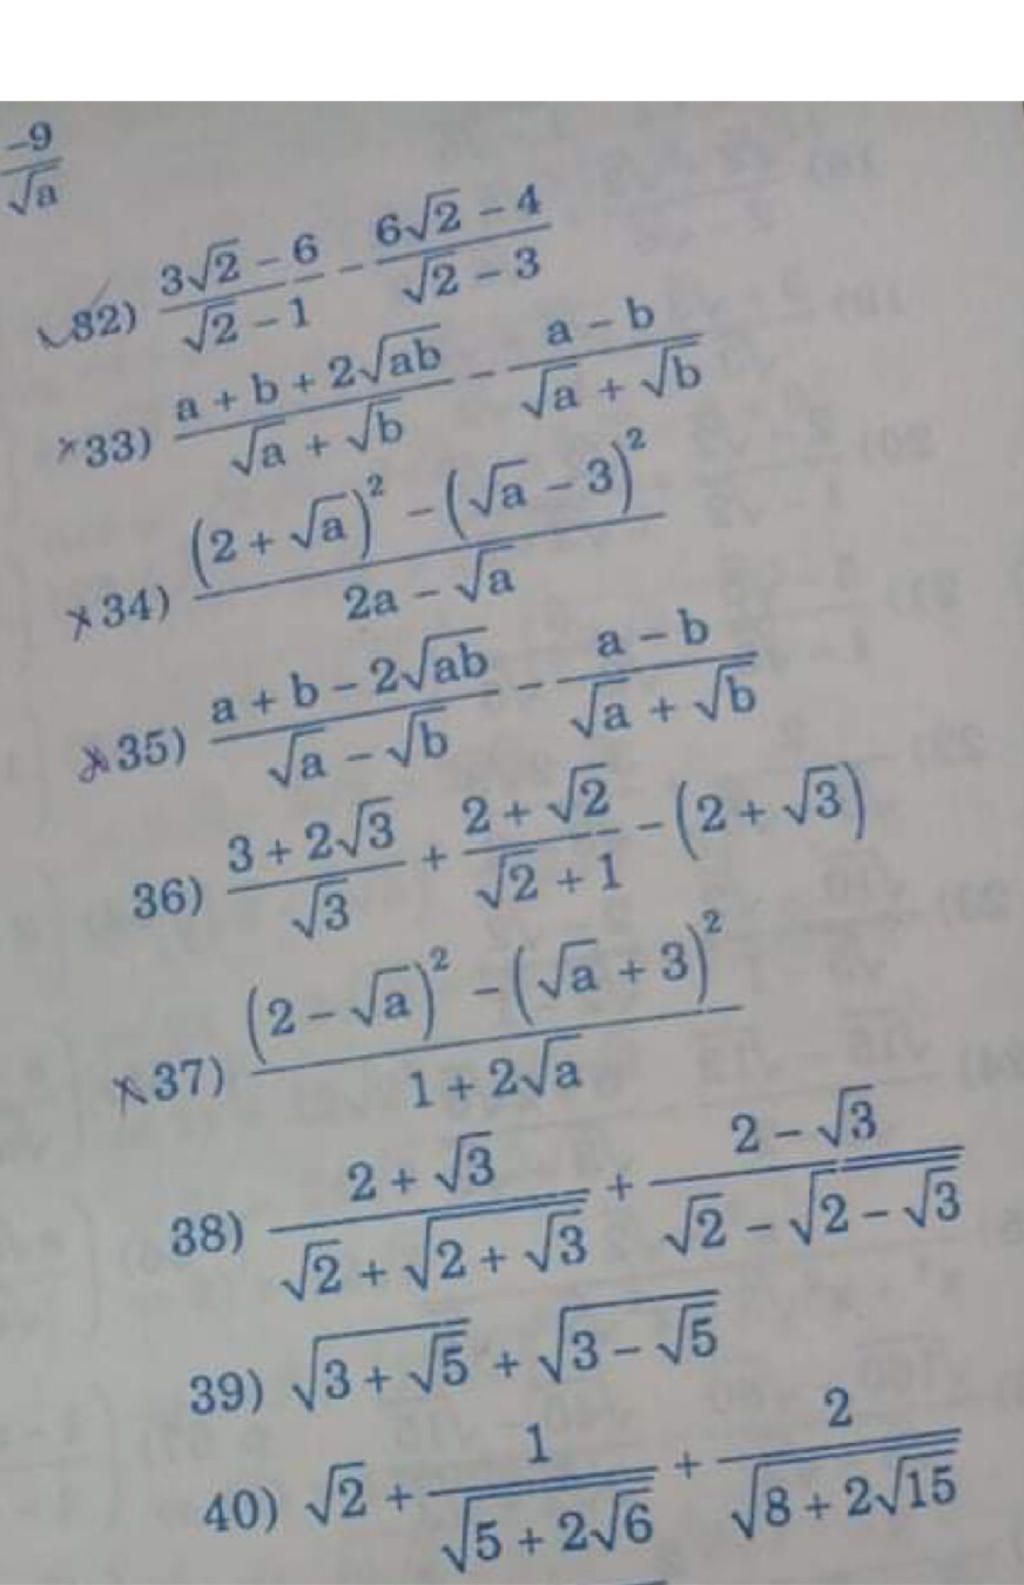 -9/√a
32) (3√2 - 6)/(√2 - 1) - (6√2 - 4)/(√2 - 3)
×33) (a + b + 2√(ab))/(√a + √b) - (a - b)/(√a + √b)
×34) ((2 + √a)² - (√a - 3)²)/(2a - √a)
×35) (a + b - 2√(ab))/(√a - √b) - (a - b)/(√a + √b)
36) (3 + 2√3)/√3 + (2 + √2)/(√2 + 1) - (2 + √3)
×37) ((2 - √a)² - (√a + 3)²)/(1 + 2√a)
38) (2 + √3)/(√2 + √(2 + √3)) + (2 - √3)/(√2 - √(2 - √3))
39) √(3 + √5) + √(3 - √5)
40) √2 + 1/√(5 + 2√6) + 2/√(8 + 2√15)